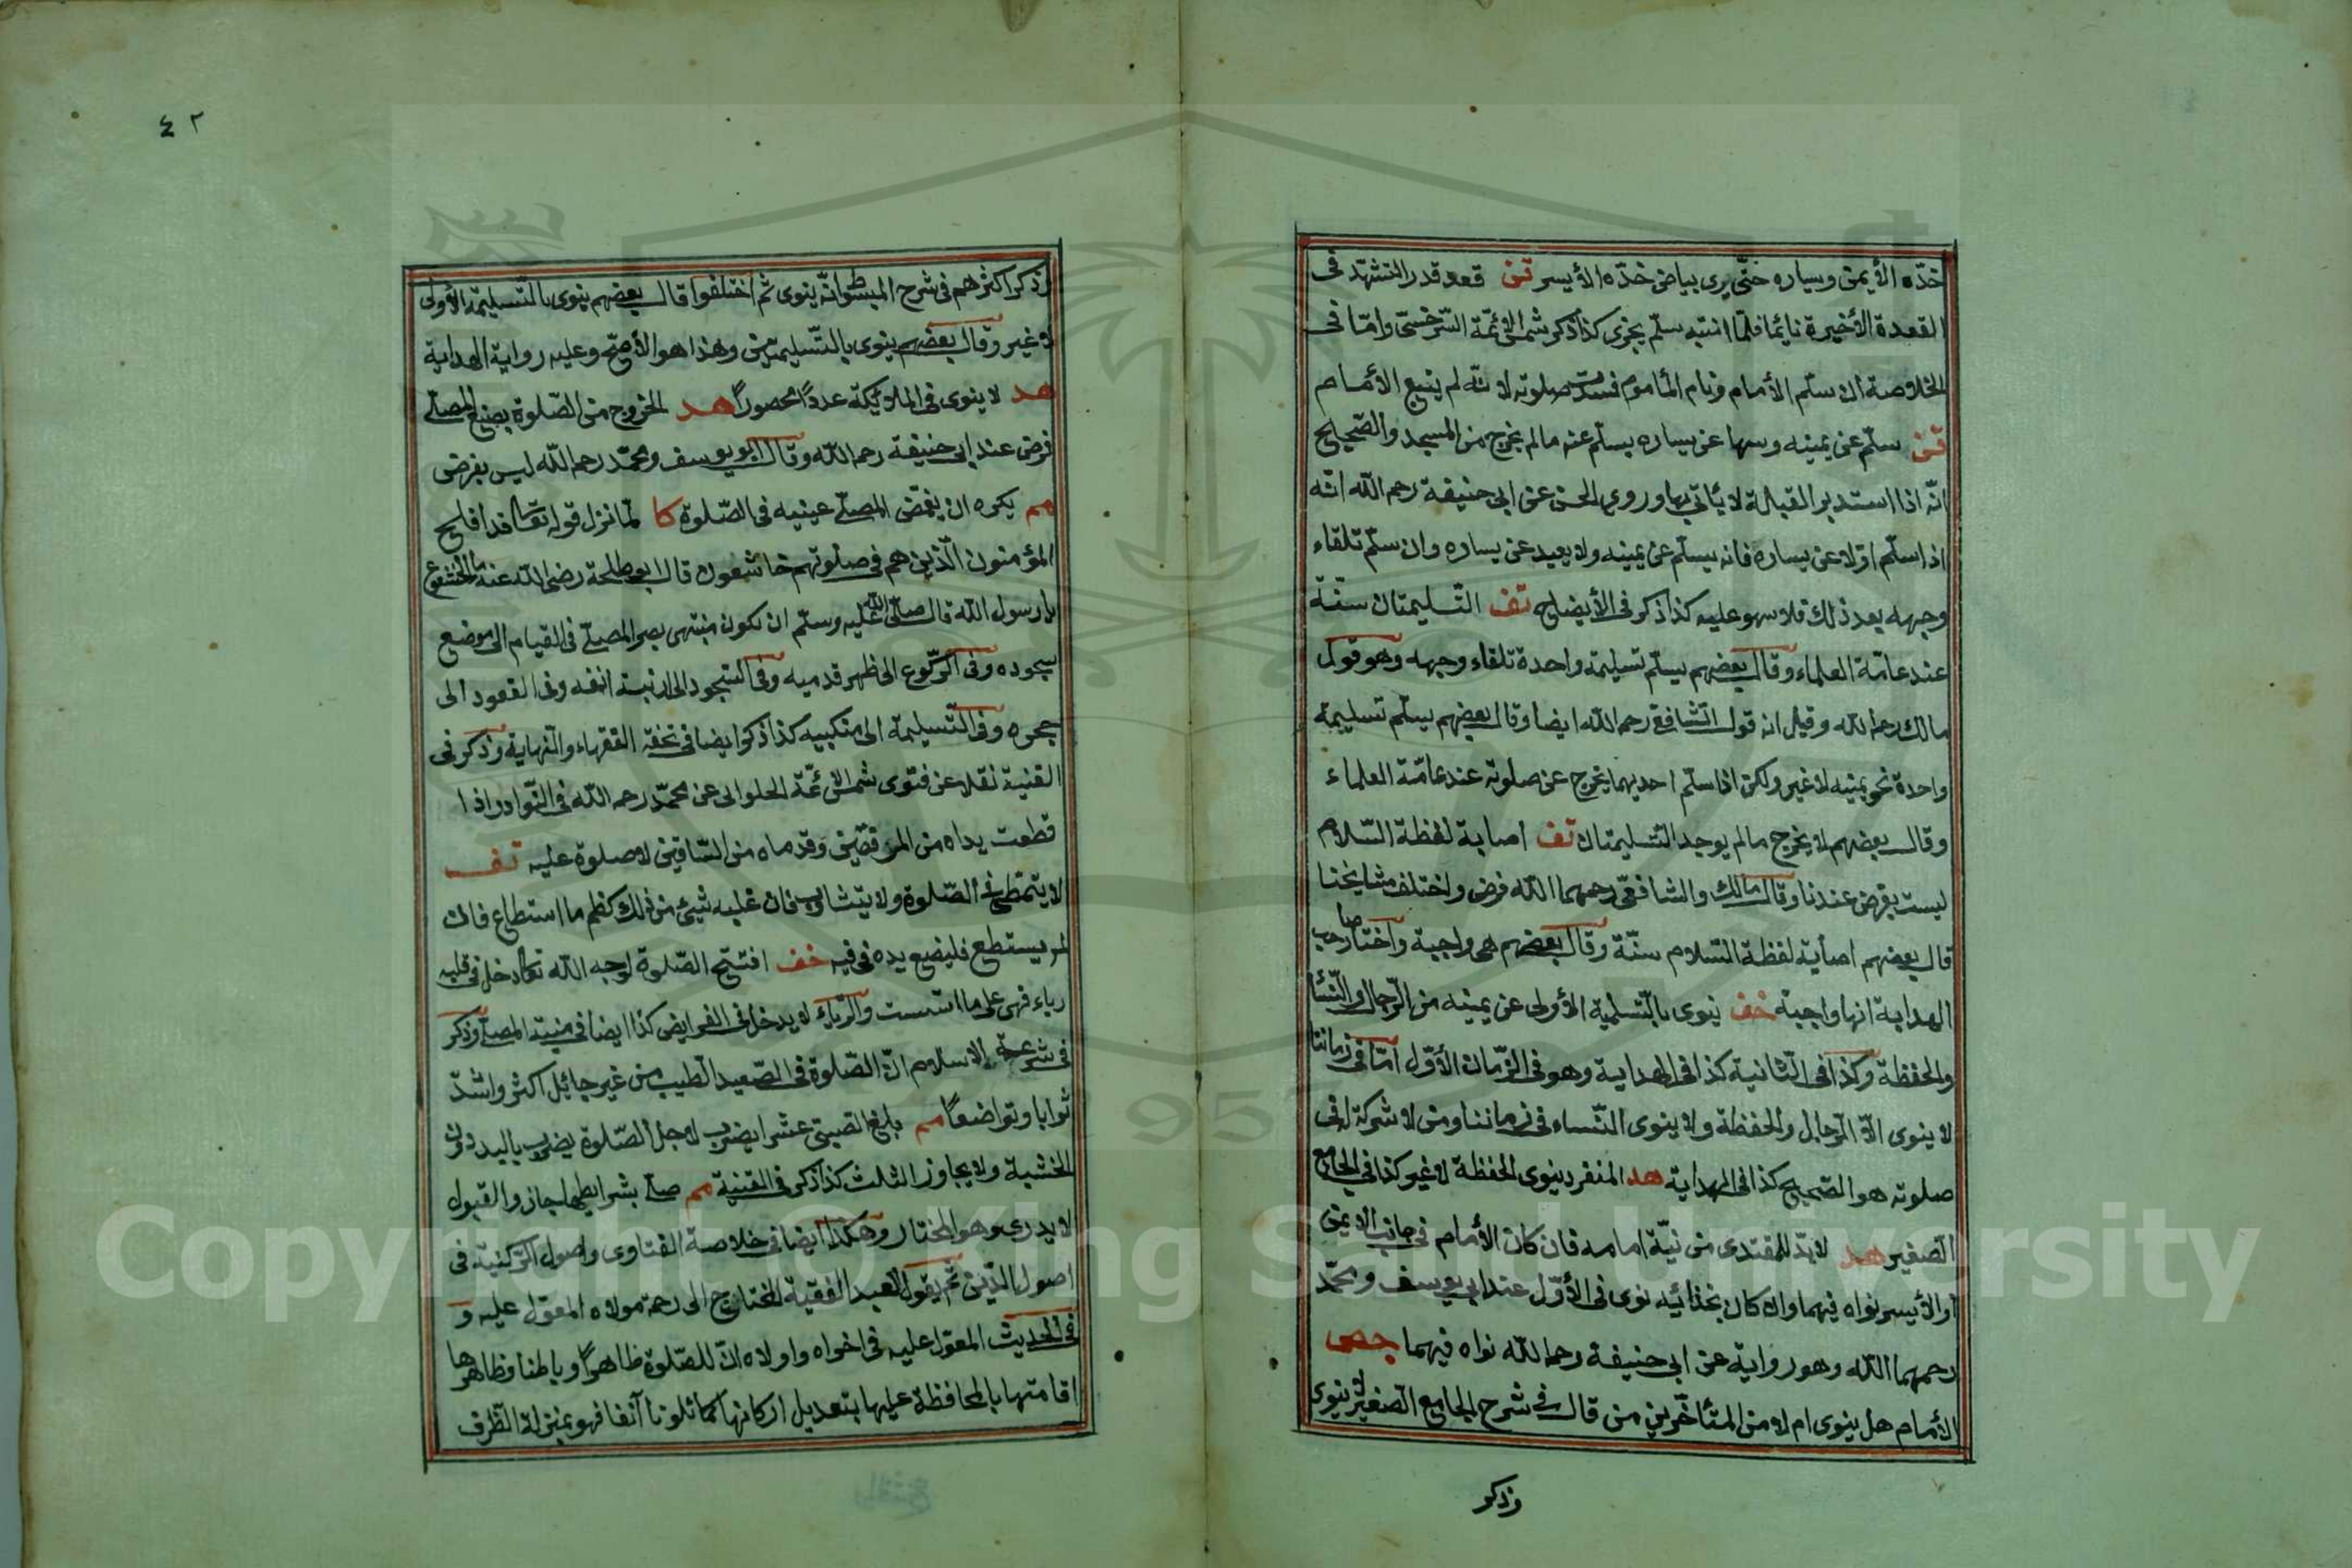 خدّه الأيمن ويساره حتّى يرى بياض خدّه الأيسر قن قعد قدر التشهّد في
القعدة الأخيرة نايما فلمّا انتبه سلّم يجزى كذا ذكر شمس الأئمّة السّرخسيّ وامّا في
الخلاصة ان سلّم الأمام ونام المأموم فسدت صلوته لانّه لم يتبع الأمام
قن سلّم عن يمينه وسها عن يساره يسلّم عنه مالم يخرج من المسجد والصّحيح
انّه اذا استدبر القبلة لا يأتي بها وروى الحسن عن ابي حنيفة رحمه الله انّه
اذا سلّم اوّلا عن يساره فانه يسلّم عن يمينه ولا يعيد عن يساره وان سلّم تلقاء
وجهه بعد ذلك فلا سهو عليه كذا ذكر في الأيضاح تف التّسليمتان سنّة
عند عامّة العلماء وقال بعضهم يسلّم تسليمة واحدة تلقاء وجهه وهو قول
مالك رحمه الله وقيل انه قول الشّافعي رحمه الله ايضا وقال بعضهم يسلّم تسليمة
واحدة نحو يمينه لا غير ولكن اذا سلّم احديهما يخرج عن صلوته عند عامّة العلماء
وقال بعضهم لا يخرج مالم يوجد التّسليمتان تف اصابة لفظة السّلام
ليست بفرض عندنا وقال مالك والشافعيّ رحمهما الله فرض واختلف مشايخنا
قال بعضهم اصابة لفظة السّلام سنّة وقال بعضهم هي واجبة واختار صاحب
الهداية انها واجبة خف ينوى بالتّسلمية الأولى عن يمينه من الرّجال والنّساء
والحفظة وكذا في الثّانية كذا في الهداية وهو في الزّمان الأوّل امّا في زماننا
لا ينوى الّا الرّجال والحفظة ولا ينوى النّساء في زماننا ومن لا شركة له في
صلوته هو الصّحيح كذا في الهداية هد المنفرد ينوى الحفظة لا غير كذا في الجامع
الصّغير هد لابدّ للمقتدى من نيّة امامه فان كان الأمام في جانب الايمن
او الأيسر نواه فيهما وان كان بحذائيه نوى في الأوّل عند ابي يوسف ومحمّد
رحمهما الله وهو رواية عن ابي حنيفة رحمه الله نواه فيهما جص
الأمام هل ينوى ام لا من المتأخّرين من قال في شرح الجامع الصّغير لا ينوى
وذكر
٤٢
وذكر اكثرهم في شرح المبسوط انّه ينوى ثم اختلفوا قال بعضهم ينوى بالتّسليمة الأولى
لا غير وقال بعضهم ينوى بالتّسليمتين وهذا هو الأصحّ وعليه رواية الهداية
هد لا ينوى في الملائكة عددًا محصورًا هد الخروج من الصّلوة بصنع المصلّى
فرض عند ابي حنيفة رحمه الله وقال ابو يوسف ومحمّد رحمه الله ليس بفرض
مم يكره ان يغمّض المصلّى عينيه في الصّلوة كا لمّا نزل قوله تعا قد افلح
المؤمنون الّذين هم في صلوتهم خاشعون قال ابو طلحة رضى الله عنه ما الخشوع
يا رسول الله قال صلّى الله عليه وسلّم ان يكون منتهى بصر المصلّى في القيام الى موضع
سجوده وفي الرّكوع الى ظهر قدميه وفي السّجود الى ارنبة انفه وفي القعود الى
حجره وفي التّسليمة الى منكبيه كذا ذكر ايضا في تحفة الفقهاء والنّهاية وذكر في
القنية نقلا عن فتوى شمس الائمّة الحلوانى عن محمّد رحمه الله في النّوادر اذا
قطعت يداه من المرفقين وقدماه من السّاقين لا صلوة عليه تف
لا يتمطّى في الصّلوة ولا يتثاوب فان غلبه شيئ من ذلك كظم ما استطاع فان
لم يستطع فليضع يده في فيه خف افتتح الصّلوة لوجه الله تعا دخل في قلبه
رياء فهي على ما اسّست والرّياء لا يدخل في الفرايض كذا ايضا في منية المصلّى وذكر
في شرعة الاسلام انّ الصّلوة في الصّعيد الطيب من غير حايل اكثر واشدّ
ثوابا وتواضعًا مم بلغ الصّبىّ عشرا يضرب لاجل الصّلوة يضرب باليد دون
الخشبة ولا يجاوز الثلث كذا ذكر في القنية مم صلّى بشرايطها جاز والقبول
لا يدرى وهو المختار وهكذا ايضا في خلاصة الفتاوى واصول الرّكنية في
اصول الدّين ثمّ يقول العبد الفقيه المحتاج الى رحمة مولاه المعوّل عليه و
في الحديث المعوّل عليه في اخراه واولاه انّ للصّلوة ظاهرًا وباطنا وظاهرها
اقامتها بالمحافظة عليها بتعديل اركانها كما تلونا آنفا فهو بمنزلة الظّرف
Copyright © King Saud University
1957